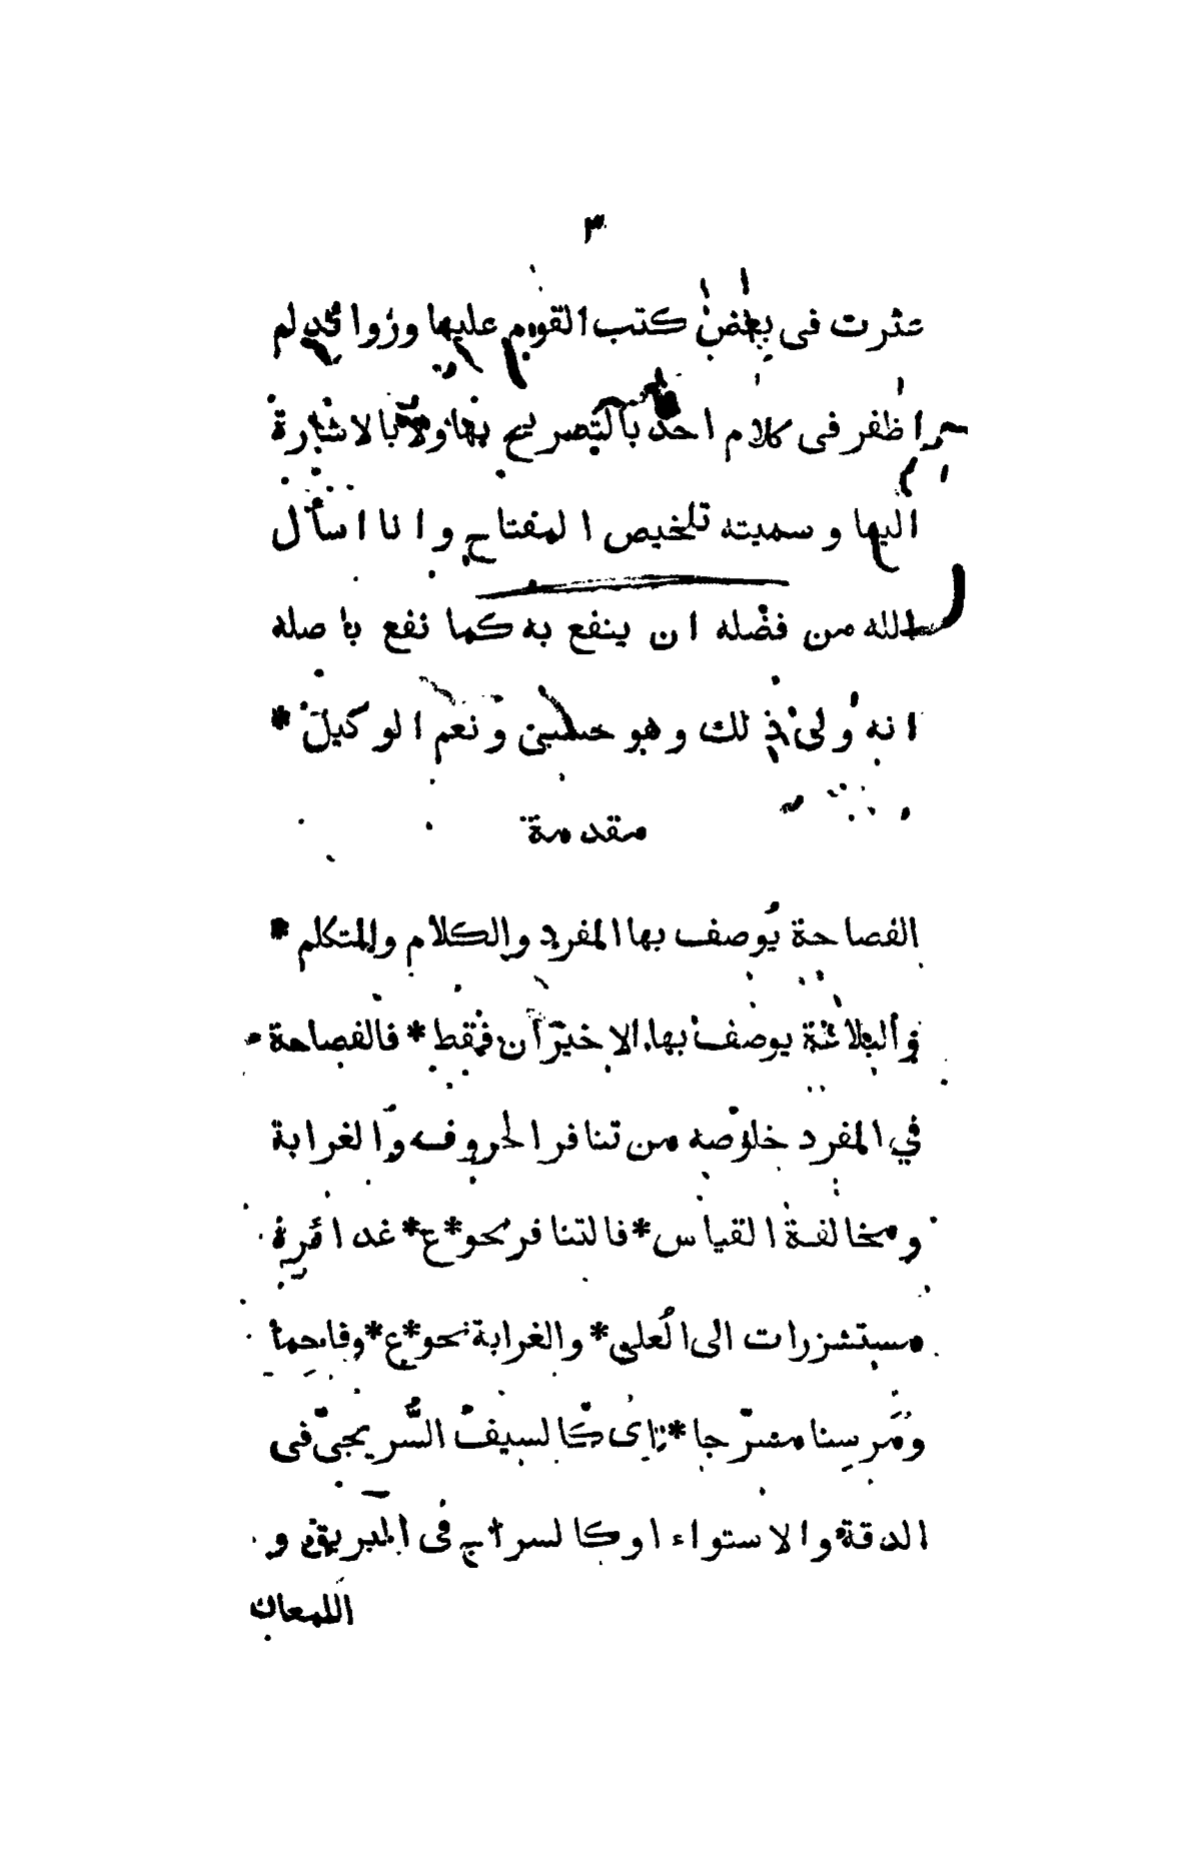 ٣
عثرت فى بعض كتب القوم عليها وزوائد لم
اظفر فى كلام احد بالتصريح بها ولا بالاشارة
اليها وسميته تلخيص المفتاح وانا اسأل
الله من فضله ان ينفع به كما نفع باصله
انه ولى ذلك وهو حسبى ونعم الوكيل *
مقدمة
الفصاحة يُوصف بها المفرد والكلام والمتكلم *
والبلاغة يوصف بها الاخيران فقط * فالفصاحة
في المفرد خلوصه من تنافر الحروف والغرابة
ومخالفة القياس * فالتنافر نحو * ع * غدائره
مستشزرات الى العُلى * والغرابة نحو * ع * وفاحما
ومَرسِنا مسرّجا * اى كالسيف السُّريجىّ فى
الدقة والاستواء او كالسراج فى البريق و
اللمعان